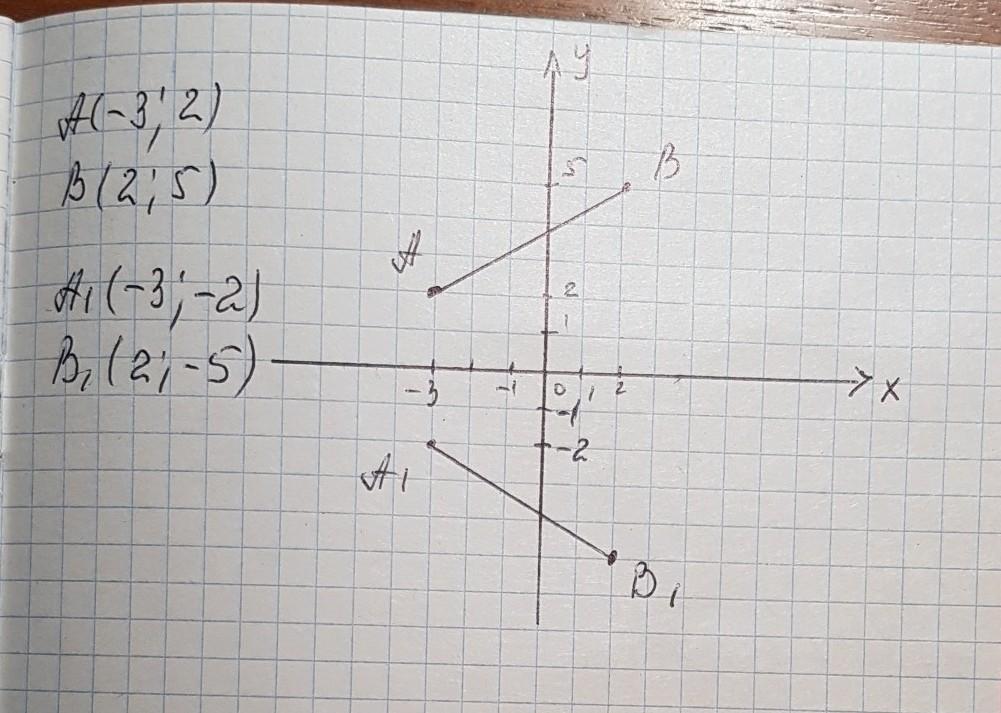 A(-3; 2)
B(2; 5)
A₁(-3; -2)
B₁(2; -5)
y
5
B
A
2
1
-3 -1 0 1 2 x
-1
-2
A₁
B₁